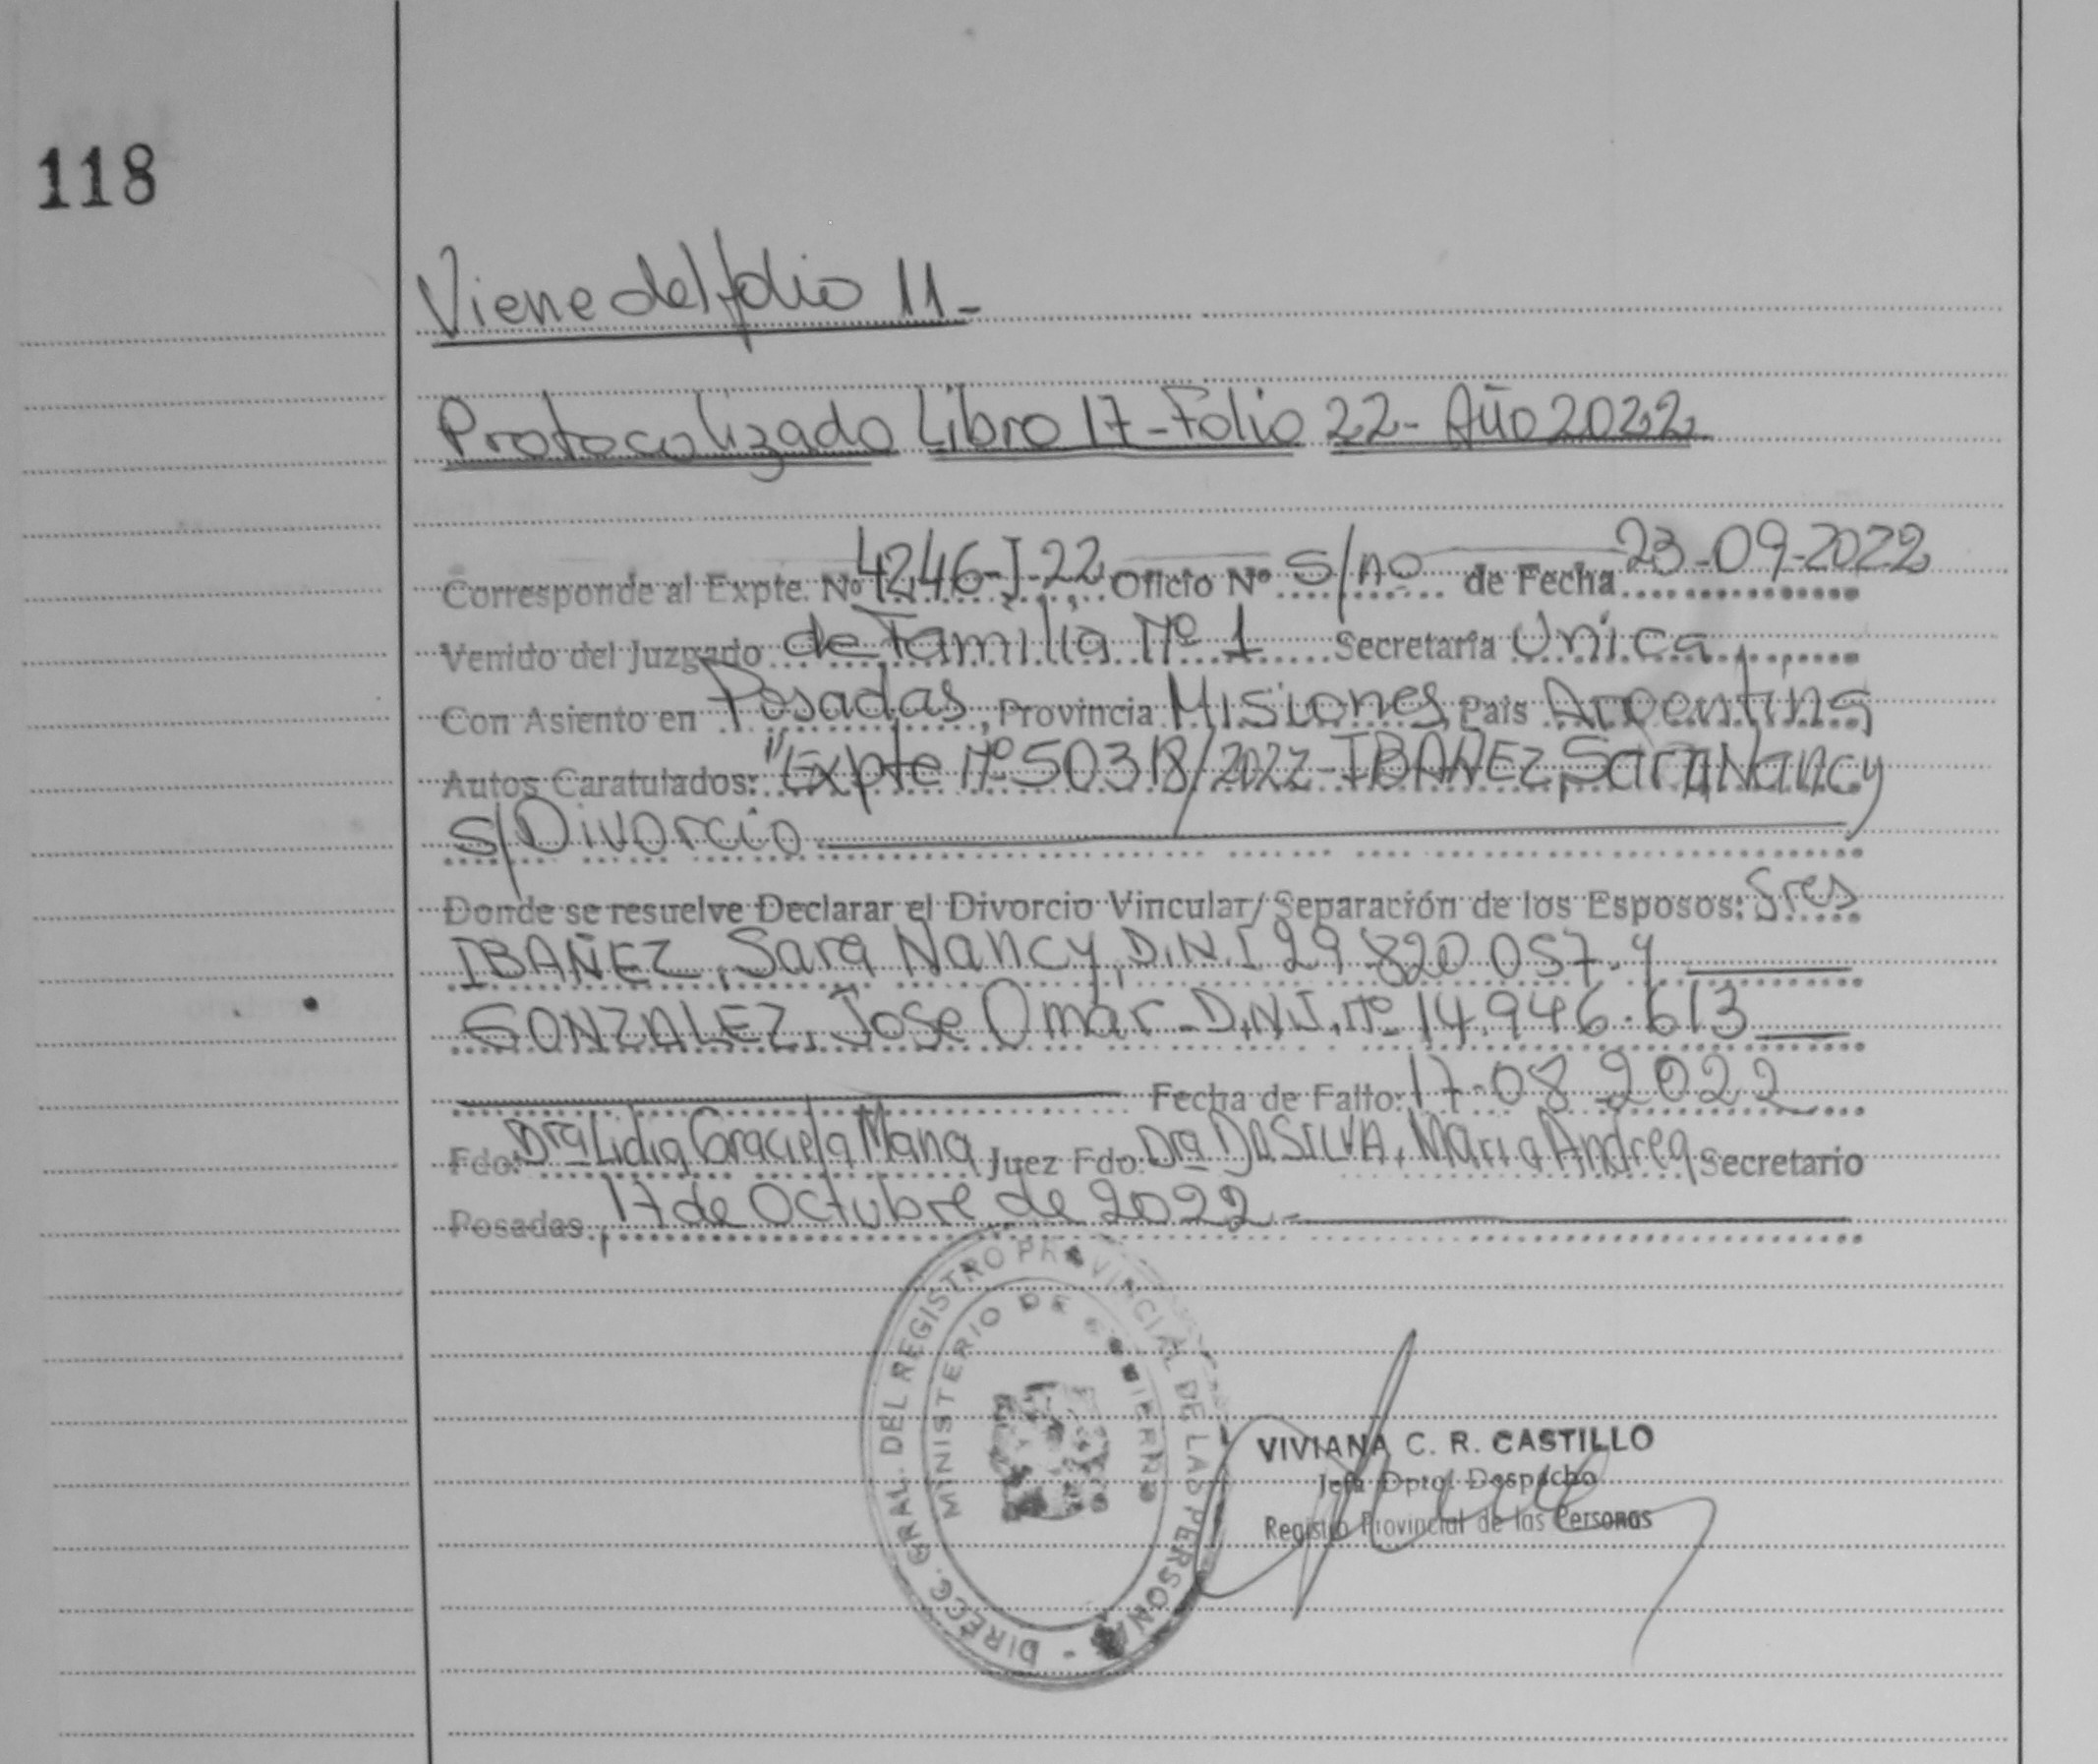 118
Viene del folio 11-
Protocolizado Libro 17-Folio 22- Año 2022
Corresponde al Expte. Nº 4246-I-22 Oficio Nº S/nº de Fecha 23-09-2022
Venido del Juzgado de Familia Nº 1 Secretaría Unica
Con Asiento en Posadas, Provincia Misiones, País Argentina
Autos Caratulados: "Expte Nº 50318/2022-IBAÑEZ, Sara Nancy
S/Divorcio
Donde se resuelve Declarar el Divorcio Vincular/ Separación de los Esposos: Sres
IBAÑEZ, Sara Nancy, D.N.I 29 820 057. y
GONZALEZ, Jose Omar - D.N.I. nº 14.946.613
Fecha de Fallo: 17-08-2022
Fdo: Dra Lidia Graciela Mana Juez Fdo: Dra DA SILVA, Maria Andrea Secretario
Posadas, 17 de Octubre de 2022.-
DIRECC. GRAL. DEL REGISTRO PROVINCIAL DE LAS PERSONAS -
MINISTERIO DE GOBIERNO
VIVIANA C. R. CASTILLO
Jefa Dpto. Despacho
Registro Provincial de las Personas